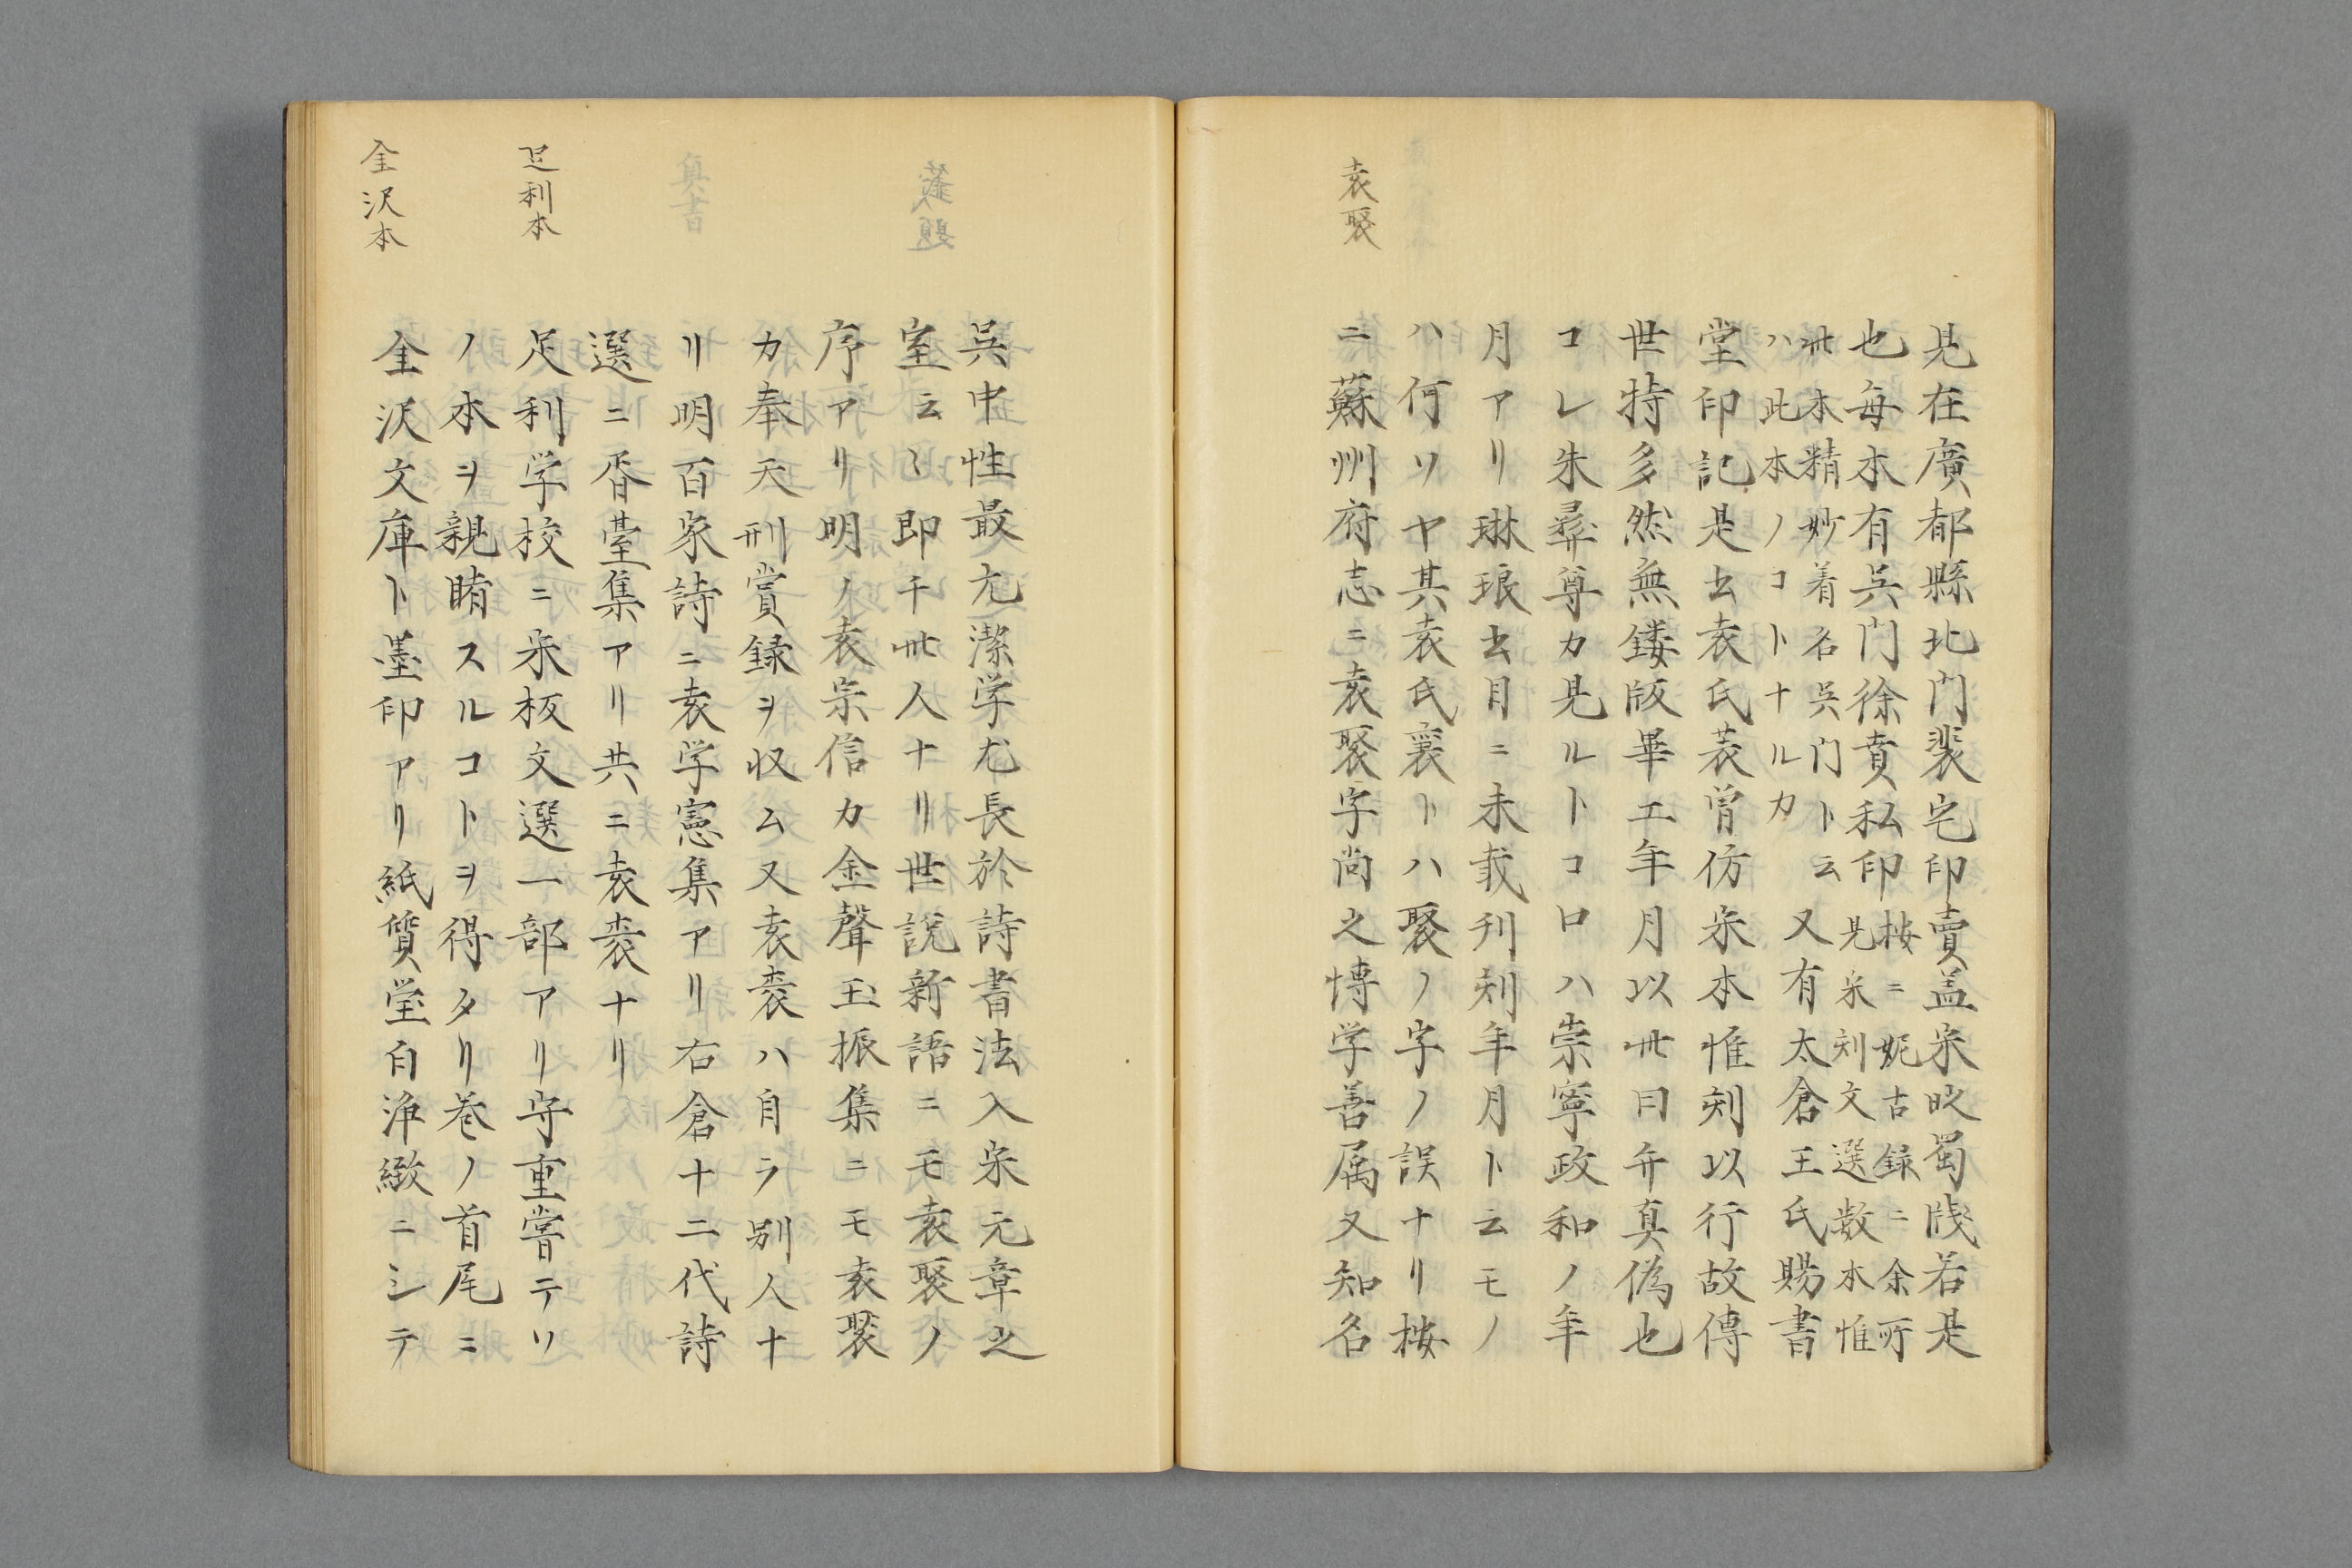 袁褧
見在廣都縣北門裴宅印賣盖宋時蜀牋若是
也毎本有呉門徐賁私印
按ニ妮古録ニ余所
見宋刻文選数本惟
此本精妙着名呉門ト云
ハ此本ノコトナルカ
又有太倉王氏賜書
堂印記是玄袁氏裘曽仿宋本惟刻以行故傳
世特多然無鏤版畢工年月以此曰弁真偽也
コレ朱彝尊カ見ルトコロハ崇寧政和ノ年
月アリ琳琅玄目ニ未載刊刻年月ト云モノ
ハ何ソヤ其袁氏裏トハ褧ノ字ノ誤ナリ按
ニ蘇州府志ニ袁褧字尚之博学善属又知名
足利本
金沢本
呉中性最亢潔学尤長於詩書法入宋元章之
室云〻即チ此人ナリ世説新語ニモ袁褧ノ
序アリ明ノ袁宗信カ金聲玉振集ニモ袁褧
カ奉天刑賞録ヲ収ム又袁袠ハ自ラ別人ナ
リ明百家詩ニ袁学憲集アリ右倉十二代詩
選ニ胥臺集アリ共ニ袁袠ナリ
足利学校ニ宋板文選一部アリ守重嘗テソ
ノ本ヲ親睹スルコトヲ得タリ巻ノ首尾ニ
金沢文庫ト墨印アリ紙質堂白浄緻ニシテ